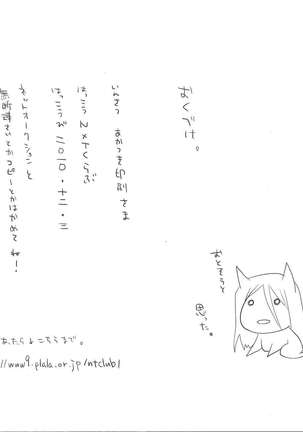 おくづけ。
いんさつ あかつき印刷さま
はっこう NメTくらぶ
はっこうび 二〇一〇・十二・三
ネットオークションと
無断転さいとかコピーとかはやめてねー!
おとそうと
思った。
こちらまで。
//www9.plala.or.jp/ntclub/